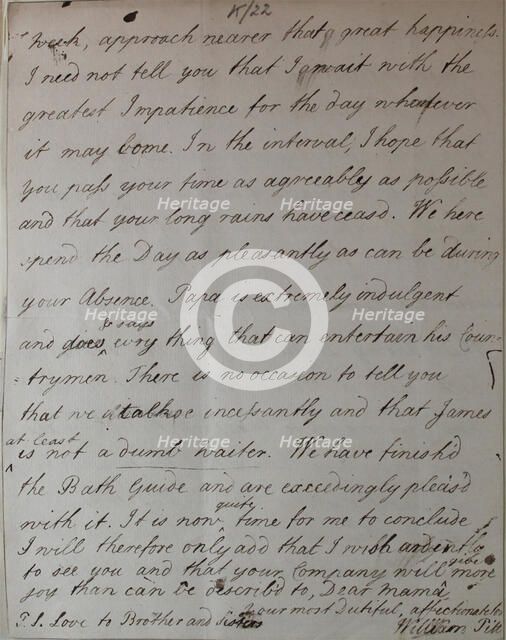 K/22
week, approach nearer that great happiness.
I need not tell you that I await with the
greatest Impatience for the day whenever
it may come. In the interval, I hope that
you pass your time as agreeably as possible
and that your long rains have ceasd. We here
spend the Day as pleasantly as can be during
your Absence. Papa is extremely indulgent
& says
and does evry thing that can entertain his Coun-
trymen. There is no occasion to tell you
that we talk incessantly and that James
at least
is not a dumb waiter. We have finish'd
the Bath Guide and are exceedingly pleas'd
quite
with it. It is now time for me to conclude
I will therefore only add that I wish ardently
give
to see you and that your Company will more
joy than can be describ'd to, Dear Mama
your most Dutiful, affectionate
P.S. Love to Brother and Sisters
William Pitt
Heritage
Heritage
Heritage
©
Heritage
Heritage
Heritage
Heritage
Images
Images
Images
Images
Images
Images
Images